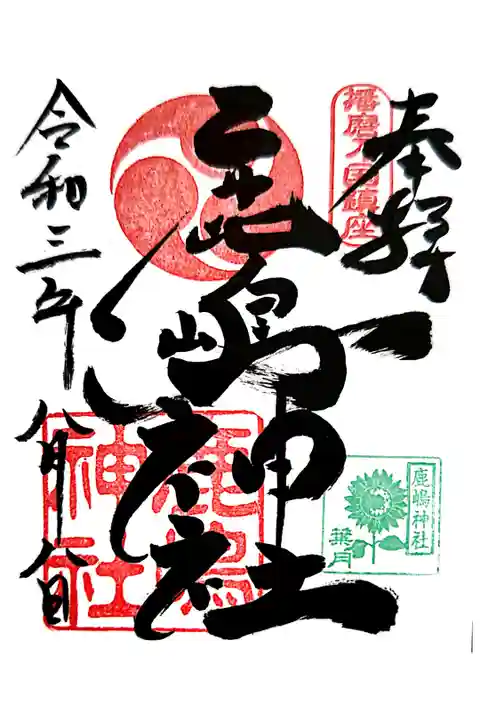 奉拝
播磨之国鎮座
鹿嶋神社
鹿嶋
神社
鹿嶋神社
葉月
令和三年八月八日